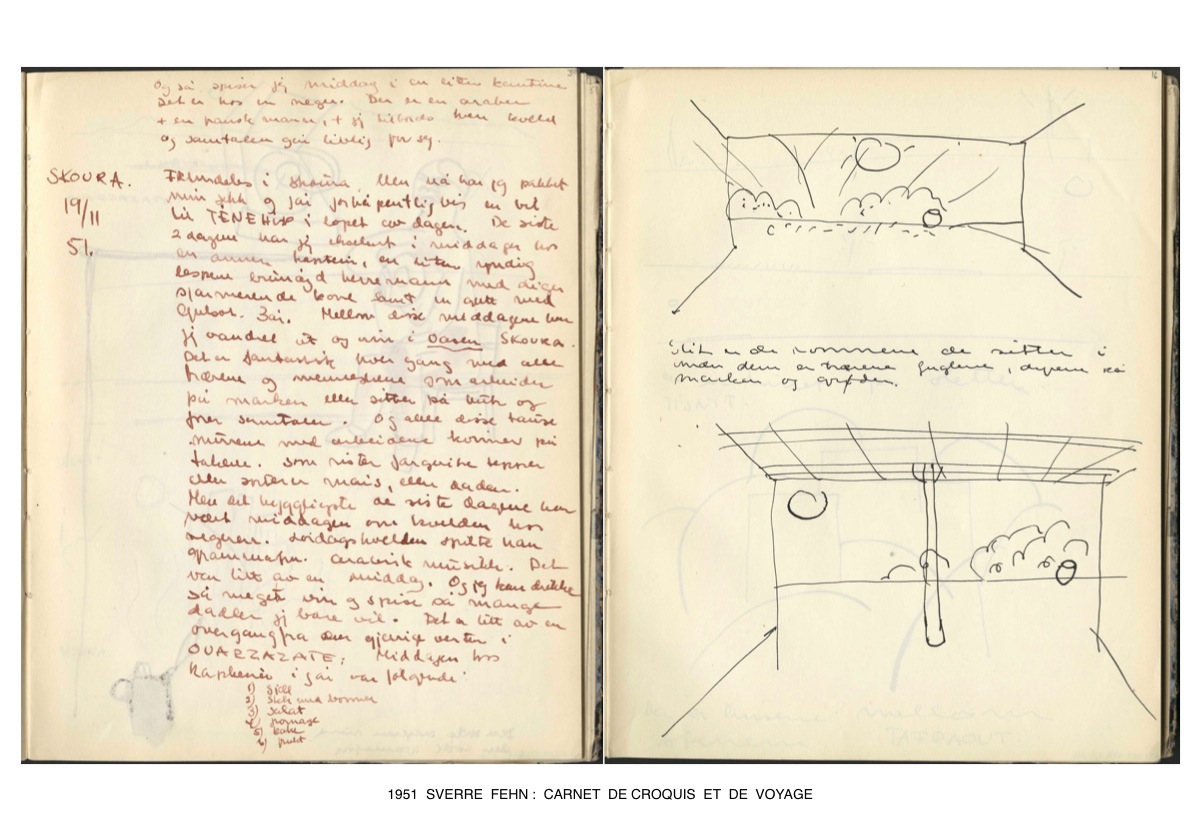 Og så spiser jeg middag i en liten kantine
Det er hos en neger. Der er en araber
+ en fransk mann, + jeg hver kveld
og samtalen går livlig for seg.
SKOURA.
19/11
51.
Fremdeles i Skoura, Men nå har jeg pakket
min sekk og får forhåpentligvis en bil
til i løpet av dagen. De siste
2 dagene har jeg i middager hos
en annen kaptein, en liten
med
sjarmerende kone samt en gutt med
Mellom disse middagene har
jeg vandret ut og inn i Oasen SKOURA.
Det er fantastisk hver gang med alle
trærne og menneskene som arbeider
på marken eller sitter på huk og
fører samtaler. Og alle disse tause
murene med arbeidene kommer på
takene. som rister fargerike tepper
eller sorterer mais, eller dadler.
Men det hyggeligste de siste dagene har
vært middagen om kvelden hos
negeren. Søndagskvelden spilte han
grammofon. arabisk musikk. Det
var litt av en middag. Og jeg kan drikke
så meget vin og spise så mange
dadler jeg bare vil. Det er litt av en
overgang fra den gjerrige verten i
OUARZAZATE: Middagen hos
Kapteinen i går var følgende:
1) Sild
2)
3) salat
4) fromage
5) kake
6) frukt
16
Slik er de rommene de sitter i
trærne fuglene,
marken og
1951 SVERRE FEHN : CARNET DE CROQUIS ET DE VOYAGE